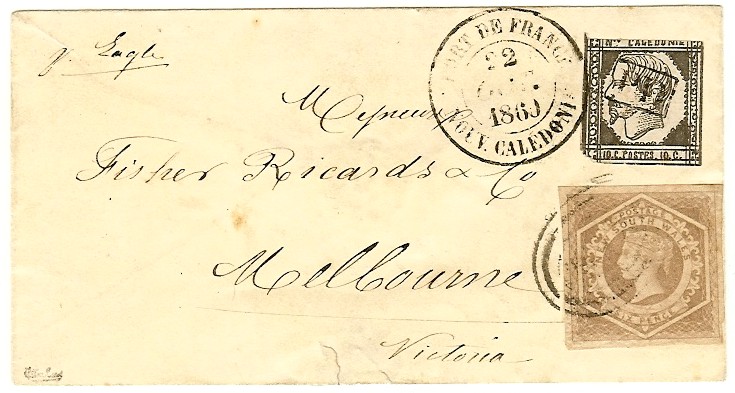 pr. Eagle
PORT DE FRANCE
22
1860
NOUV. CALEDONIE
Nlle CALEDONIE
10.C. POSTES. 10.C.
Messieurs
Fisher Ricards & Co
Melbourne
Victoria
POSTAGE
SOUTH WALES
SIX PENCE